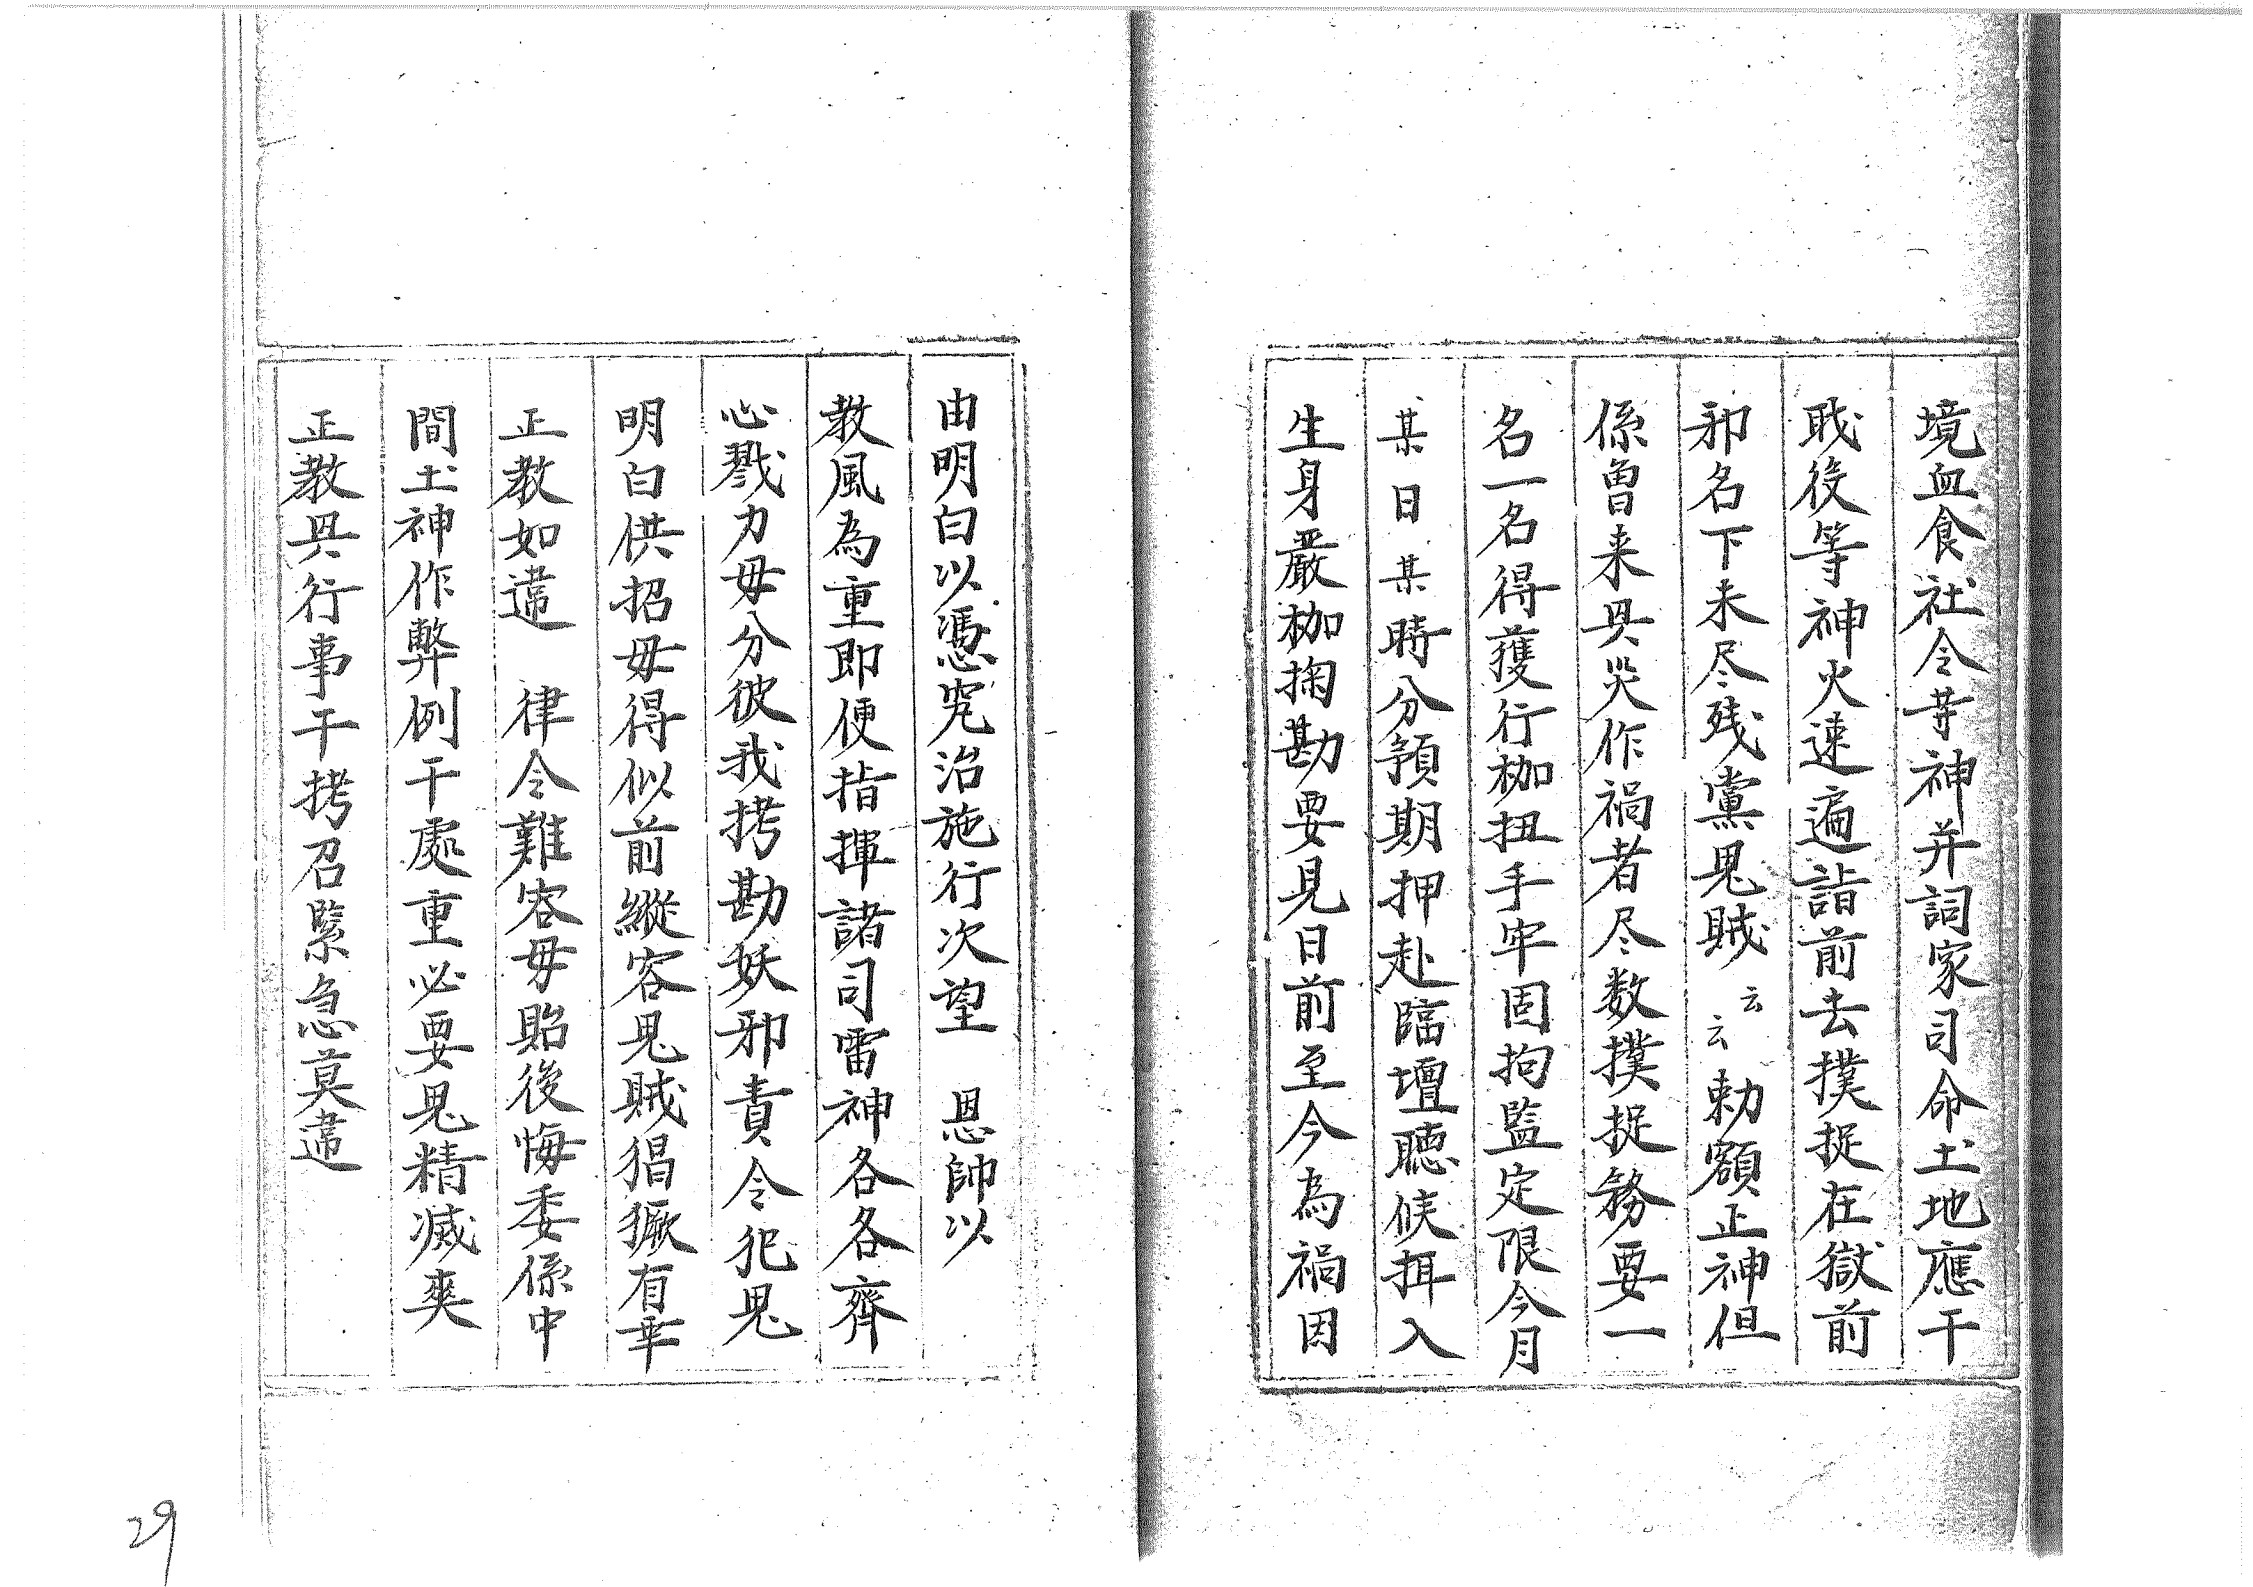 境血食社令等神并詞家司命土地應干
戝役等神火速遍詣前去撲捉在獄前
邪名下未尽残黨鬼賊云云勅額正神但
係曽来兴災作禍者尽数撲捉務要一
名一名得獲行枷扭手牢固拘監定限今月
某日某時分預期押赴臨壇聴候押入
生身嚴枷掬勘要見日前至今為禍因
由明白以憑究治施行次望 恩帥以
教風為重即便指揮諸司雷神各各齊
心戮力毋分彼我拷勘妖邪責令犯鬼
明白供招毋得似前縦容鬼賊猖獗有辜
正教如違 律令難容毋貽後悔委係中
間土神作弊例干處重必要鬼精滅爽
正教兴行事干拷召緊急莫違
29